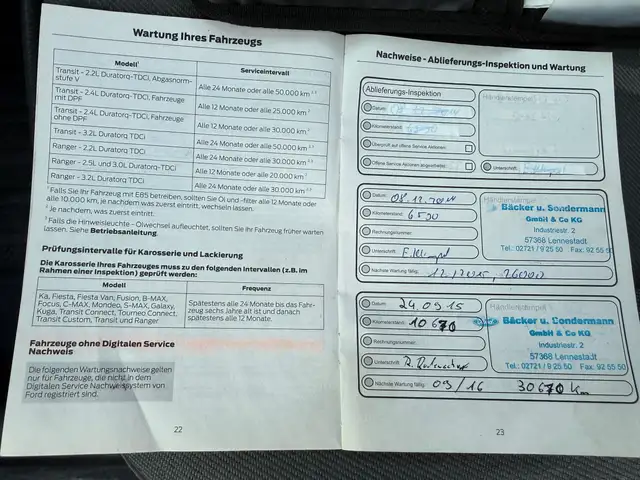 Wartung Ihres Fahrzeugs
Modell¹ Serviceintervall
Transit - 2.2L Duratorq-TDCI, Abgasnorm-
stufe V
Alle 24 Monate oder alle 50.000 km
Transit - 2.4L Duratorq-TDCI, Fahrzeuge
mit DPF
Alle 12 Monate oder alle 25.000 km
Transit - 2.4L Duratorq-TDCI, Fahrzeuge
ohne DPF
Alle 12 Monate oder alle 30.000 km
Transit - 3.2L Duratorq TDCi
Alle 24 Monate oder alle 50.000 km
Ranger - 2.2L Duratorq TDCi
Alle 24 Monate oder alle 30.000 km
Ranger - 2.5L und 3.0L Duratorq-TDCi
Alle 12 Monate oder alle 20.000 km
Ranger - 3.2L Duratorq TDCi
Alle 24 Monate oder alle 30.000 km
¹ Falls Sie Ihr Fahrzeug mit E85 betreiben, sollten Sie Öl und -filter alle 12 Monate oder
alle 10.000 km, je nachdem was zuerst eintritt, wechseln lassen.
² Je nachdem, was zuerst eintritt.
³ Falls die Hinweisleuchte - Ölwechsel aufleuchtet, sollten Sie Ihr Fahrzeug früher warten
lassen. Siehe Betriebsanleitung.
Prüfungsintervalle für Karosserie und Lackierung
Die Karosserie Ihres Fahrzeugs muss zu den folgenden Intervallen (z.B. im
Rahmen einer Inspektion) geprüft werden:
Modell Frequenz
Ka, Fiesta, Fiesta Van, Fusion, B-MAX,
Focus, C-MAX, Mondeo, S-MAX, Galaxy,
Kuga, Transit Connect, Tourneo Connect,
Transit Custom, Transit und Ranger
Spätestens alle 24 Monate bis das Fahr-
zeug sechs Jahre alt ist und danach
spätestens alle 12 Monate.
Fahrzeuge ohne Digitalen Service
Nachweis
Die folgenden Wartungsnachweise gelten
nur für Fahrzeuge, die nicht in dem
Digitalen Service Nachweissystem von
Ford registriert sind.
22
Nachweise - Ablieferungs-Inspektion und Wartung
Ablieferungs-Inspektion
Händlerstempel
Datum:
Kilometerstand:
Überprüft auf offene Service Aktionen
Offene Service Aktionen angearbeitet:
Unterschrift:
Datum: 08.12.
Händlerstempel
Kilometerstand: 6500
Rechnungsnummer:
Unterschrift:
Bäcker u. Sondermann
GmbH & Co KG
Industriestr. 2
57368 Lennestadt
Tel.: 02721 / 9 25 50 Fax: 92 55 50
Nächste Wartung fällig: 12/2015, 26000
Datum: 24.09.15
Händlerstempel
Kilometerstand: 10670
Rechnungsnummer:
Unterschrift:
Bäcker u. Sondermann
GmbH & Co KG
Industriestr. 2
57368 Lennestadt
Tel.: 02721 / 9 25 50 Fax 92 55 50
Nächste Wartung fällig: 09/16 30670 Km
23